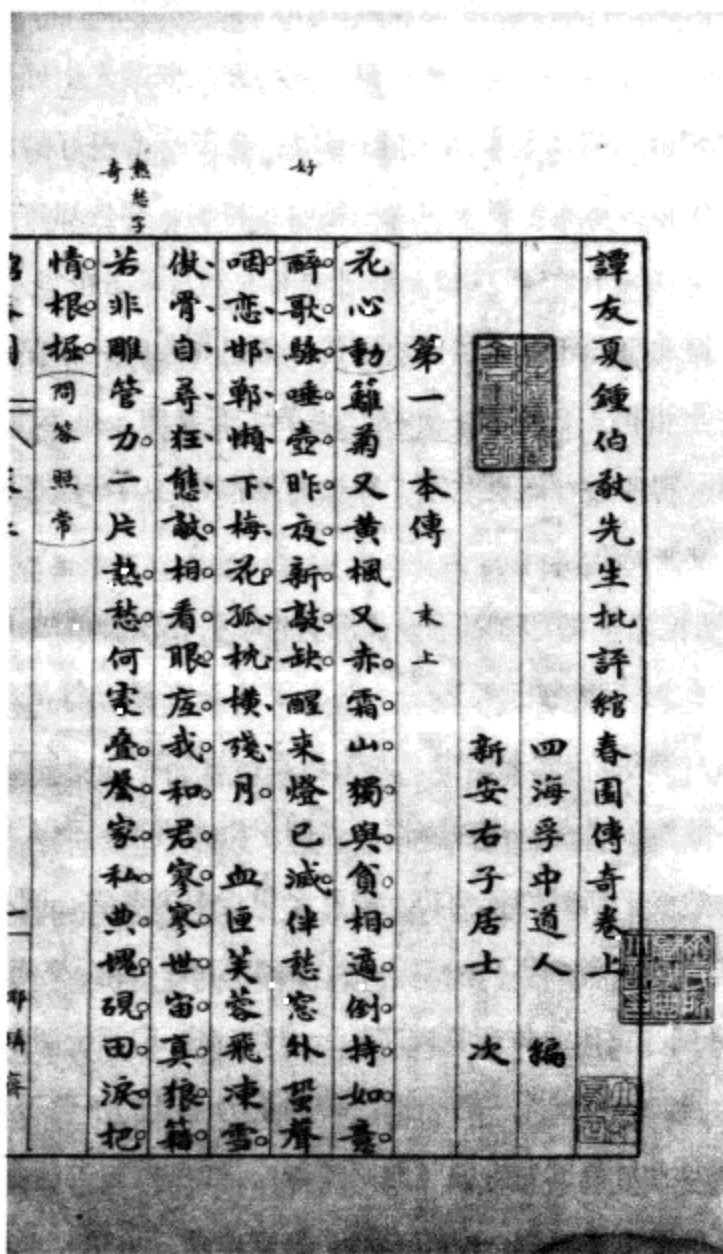 譚友夏鍾伯敬先生批評綰春園傳奇卷上
四海孚中道人 編
新安右子居士 次
第一 本傳 末上
好
花心動籬菊又黃楓又赤霜山獨與貧相適倒持如意
醉歌騷唾壺昨夜新敲缺醒來燈已滅伴愁窓外蛩聲
咽戀邯鄲懶下梅花孤枕橫殘月 血匣芙蓉飛凍雪
傲骨自尋狂態敵相看眼底我和君寥寥世宙真狼藉
熱愁子
奇
若非雕管力一片熱愁何處疊罄家私典塊硯田淚把
情根掘問答照常